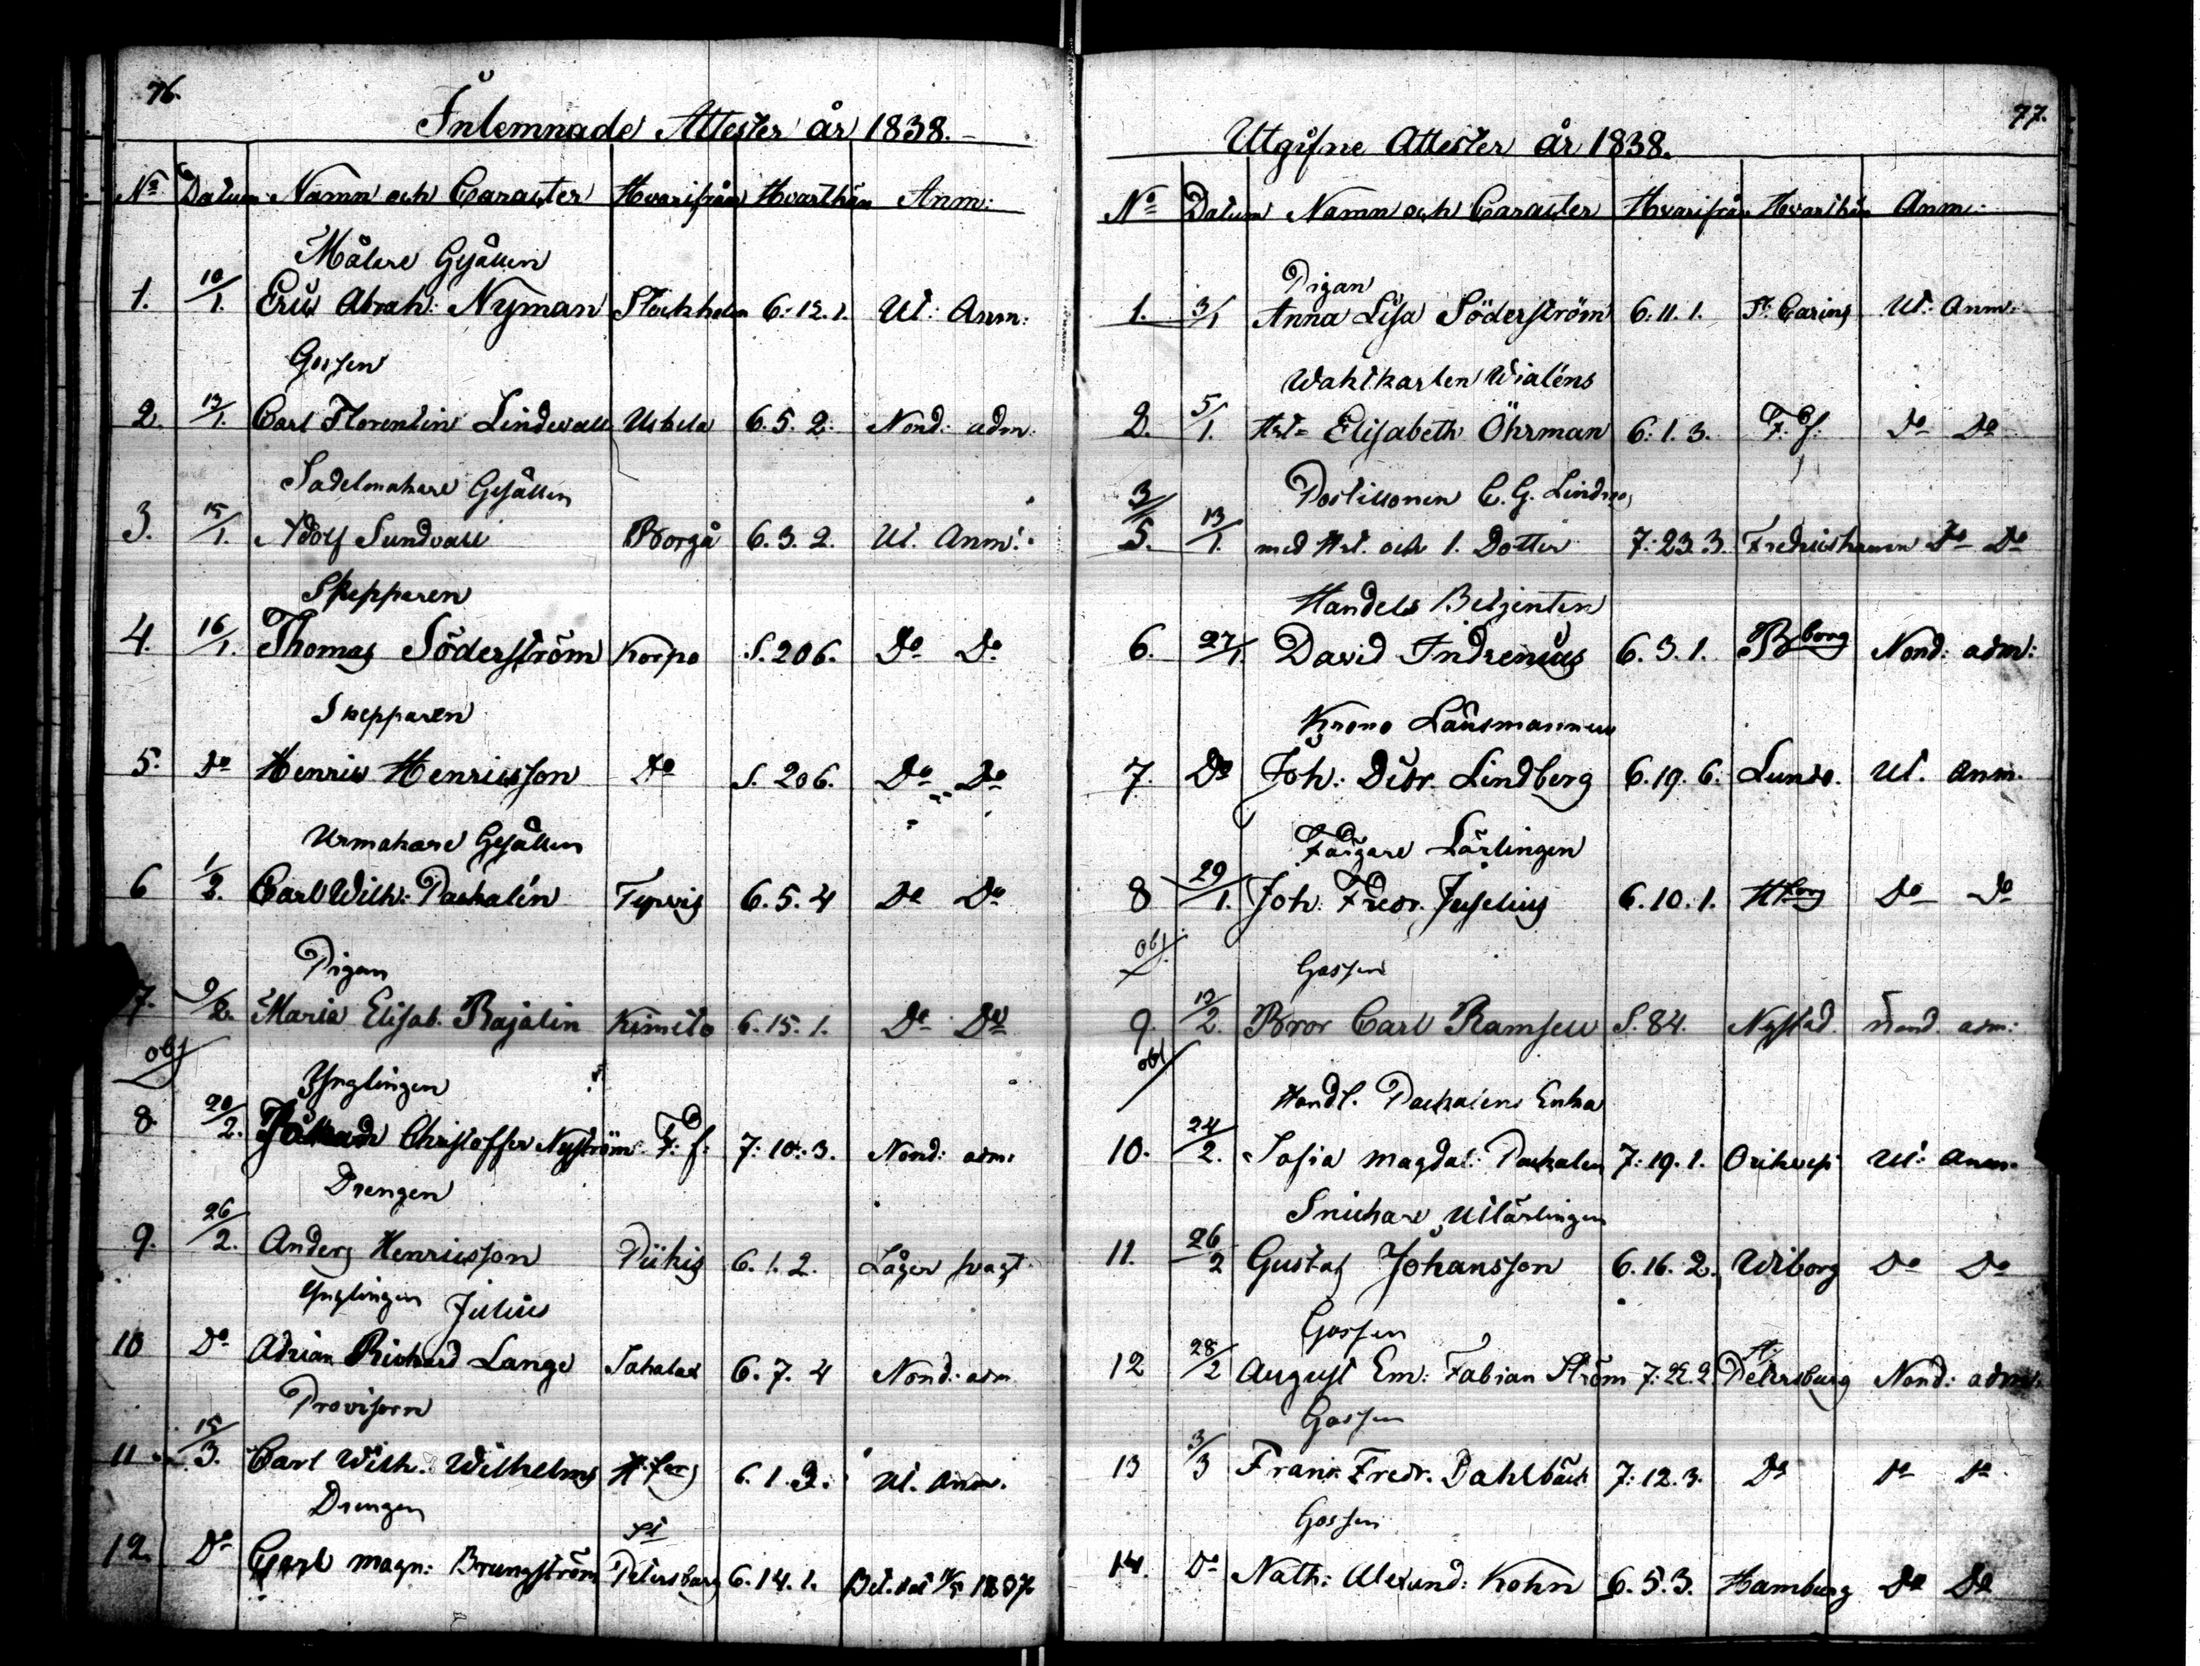 76.
Inlemnade Attester år 1838.
No Datum Namn och Caracter Hvarifrån Hvarthän Anm:
Målare Gesällen
1. 10/1. Eric Abrah: Nyman Stockholm 6.12.1. Ut: Anm:
Gossen
2. 13/1. Carl Florentin Lindevall Uskela 6.5.2. Nond: adm:
Sadelmakare Gesällen
3. 15/1. Adolf Sundvall Borgå 6.3.2. Ut. Anm:
Skepparen
4. 16/1. Thomas Söderström Korpo S.206. Do Do
Skepparen
5. Do Henric Henricsson Do S.206. Do Do
Urmakare Gesällen
6 1/2. Carl Wilh: Paskalén Tyrvis 6.5.4 Do Do
Pigan
7. 9/2. Maria Elisab. Rajalin Kimito 6.15.1. Do Do
obs
Ynglingen
8 20/2. Christoffer Nyström F: f: 7:10.3. Nond: adm:
Drengen
9. 26/2. Anders Henricsson Piikis 6.1.2. Läger vagt
Ynglingen Julius
10 Do Adrian Richard Lange Sahalax 6.7.4 Nond: adm
Provisorn
11 15/3. Carl Wilh. Wilhelms H:fors 6.1.3. Ut. Anm.
Drengen
12. Do Carl Magn: Brungström St Petersburg 6.14.1. 1837
77.
Utgifne Attester år 1838.
No Datum Namn och Caracter Hvarifrån Hvarthän Anm:
Pigan
1. 3/1 Anna Lisa Söderström 6.11.1. St: Carins Ut: Anm:
Wahtkarlen Wialéns
2. 5/1. Hst= Elisabeth Öhrman 6.1.3. F. f: Do Do
3 Postillonen C. G. Lindros
5. 13/1. med Hst. och 1. Dotter 7:23.3. Fredricshamn Do Do
Handels Betjenten
6. 27/1. David Indrenius 6.3.1. Bborg Nond: adm:
Krono Länsmannen
7. Do Joh: Didr. Lindberg 6.19.6. Lundo. Ut. Anm.
Färgare Lärlingen
8 29/1. Joh. Fredr. Juselius 6.10.1. Hfors Do Do
obs
Gossen
9. 12/2. Bror Carl Ramsell S.84. Nystad nond. adm:
obs
Handl. Paskalens Enka
10. 24/2. Sofia Magdal: Paskalen 7:19.1. Orihvesi Ut: Anm.
Snickare Utlärlingen
11. 26/2 Gustaf Johansson 6.16.2. Wiborg Do Do
Gossen
12 28/2 August Em: Fabian Ström 7:22.2. St: Petersburg Nond: adm:
Gossen
13 3/3 Franc. Fredr. Dahlbäck 7:12.3. Do Do Do
Gossen
14. Do Nath: Alexand: Kohn 6.5.3. Hamburg Do Do